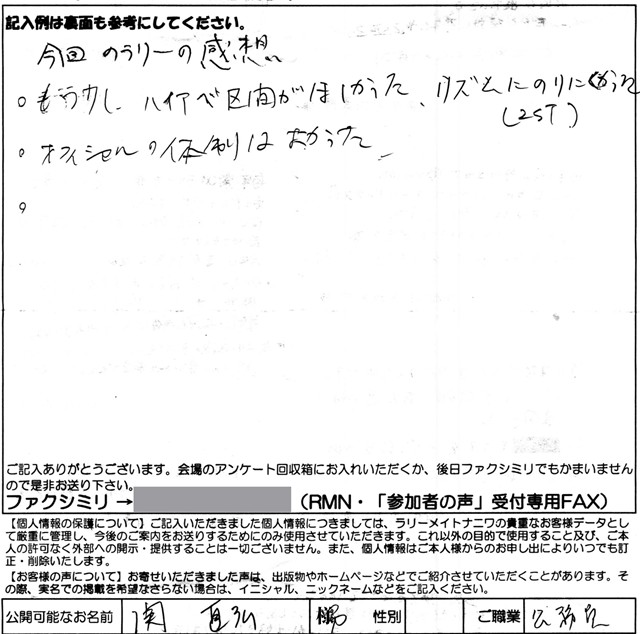 記入例は裏面も参考にしてください。
今回のラリーの感想
○もう少しハイアベ区間がほしかった、リズムにのりにくかった
(2ST)
○オフィシャルの体制はよかった
○
ご記入ありがとうございます。会場のアンケート回収箱にお入れいただくか、後日ファクシミリでもかまいません
ので是非お送り下さい。
ファクシミリ→ (RMN・「参加者の声」受付専用FAX)
【個人情報の保護について】ご記入いただきました個人情報につきましては、ラリーメイトナニワの貴重なお客様データとし
て厳重に管理し、今後のご案内をお送りするためにのみ使用させていただきます。これ以外の目的で使用すること及び、ご本
人の許可なく外部への開示・提供することは一切ございません。また、個人情報はご本人様からのお申し出によりいつでも訂
正・削除いたします。
【お客様の声について】お寄せいただきました声は、出版物やホームページなどでご紹介させていただくことがあります。そ
の際、実名での掲載を希望なさらない場合は、イニシャル、ニックネームなどをご記入ください。
公開可能なお名前 関 直弘 性別 ご職業 公務員